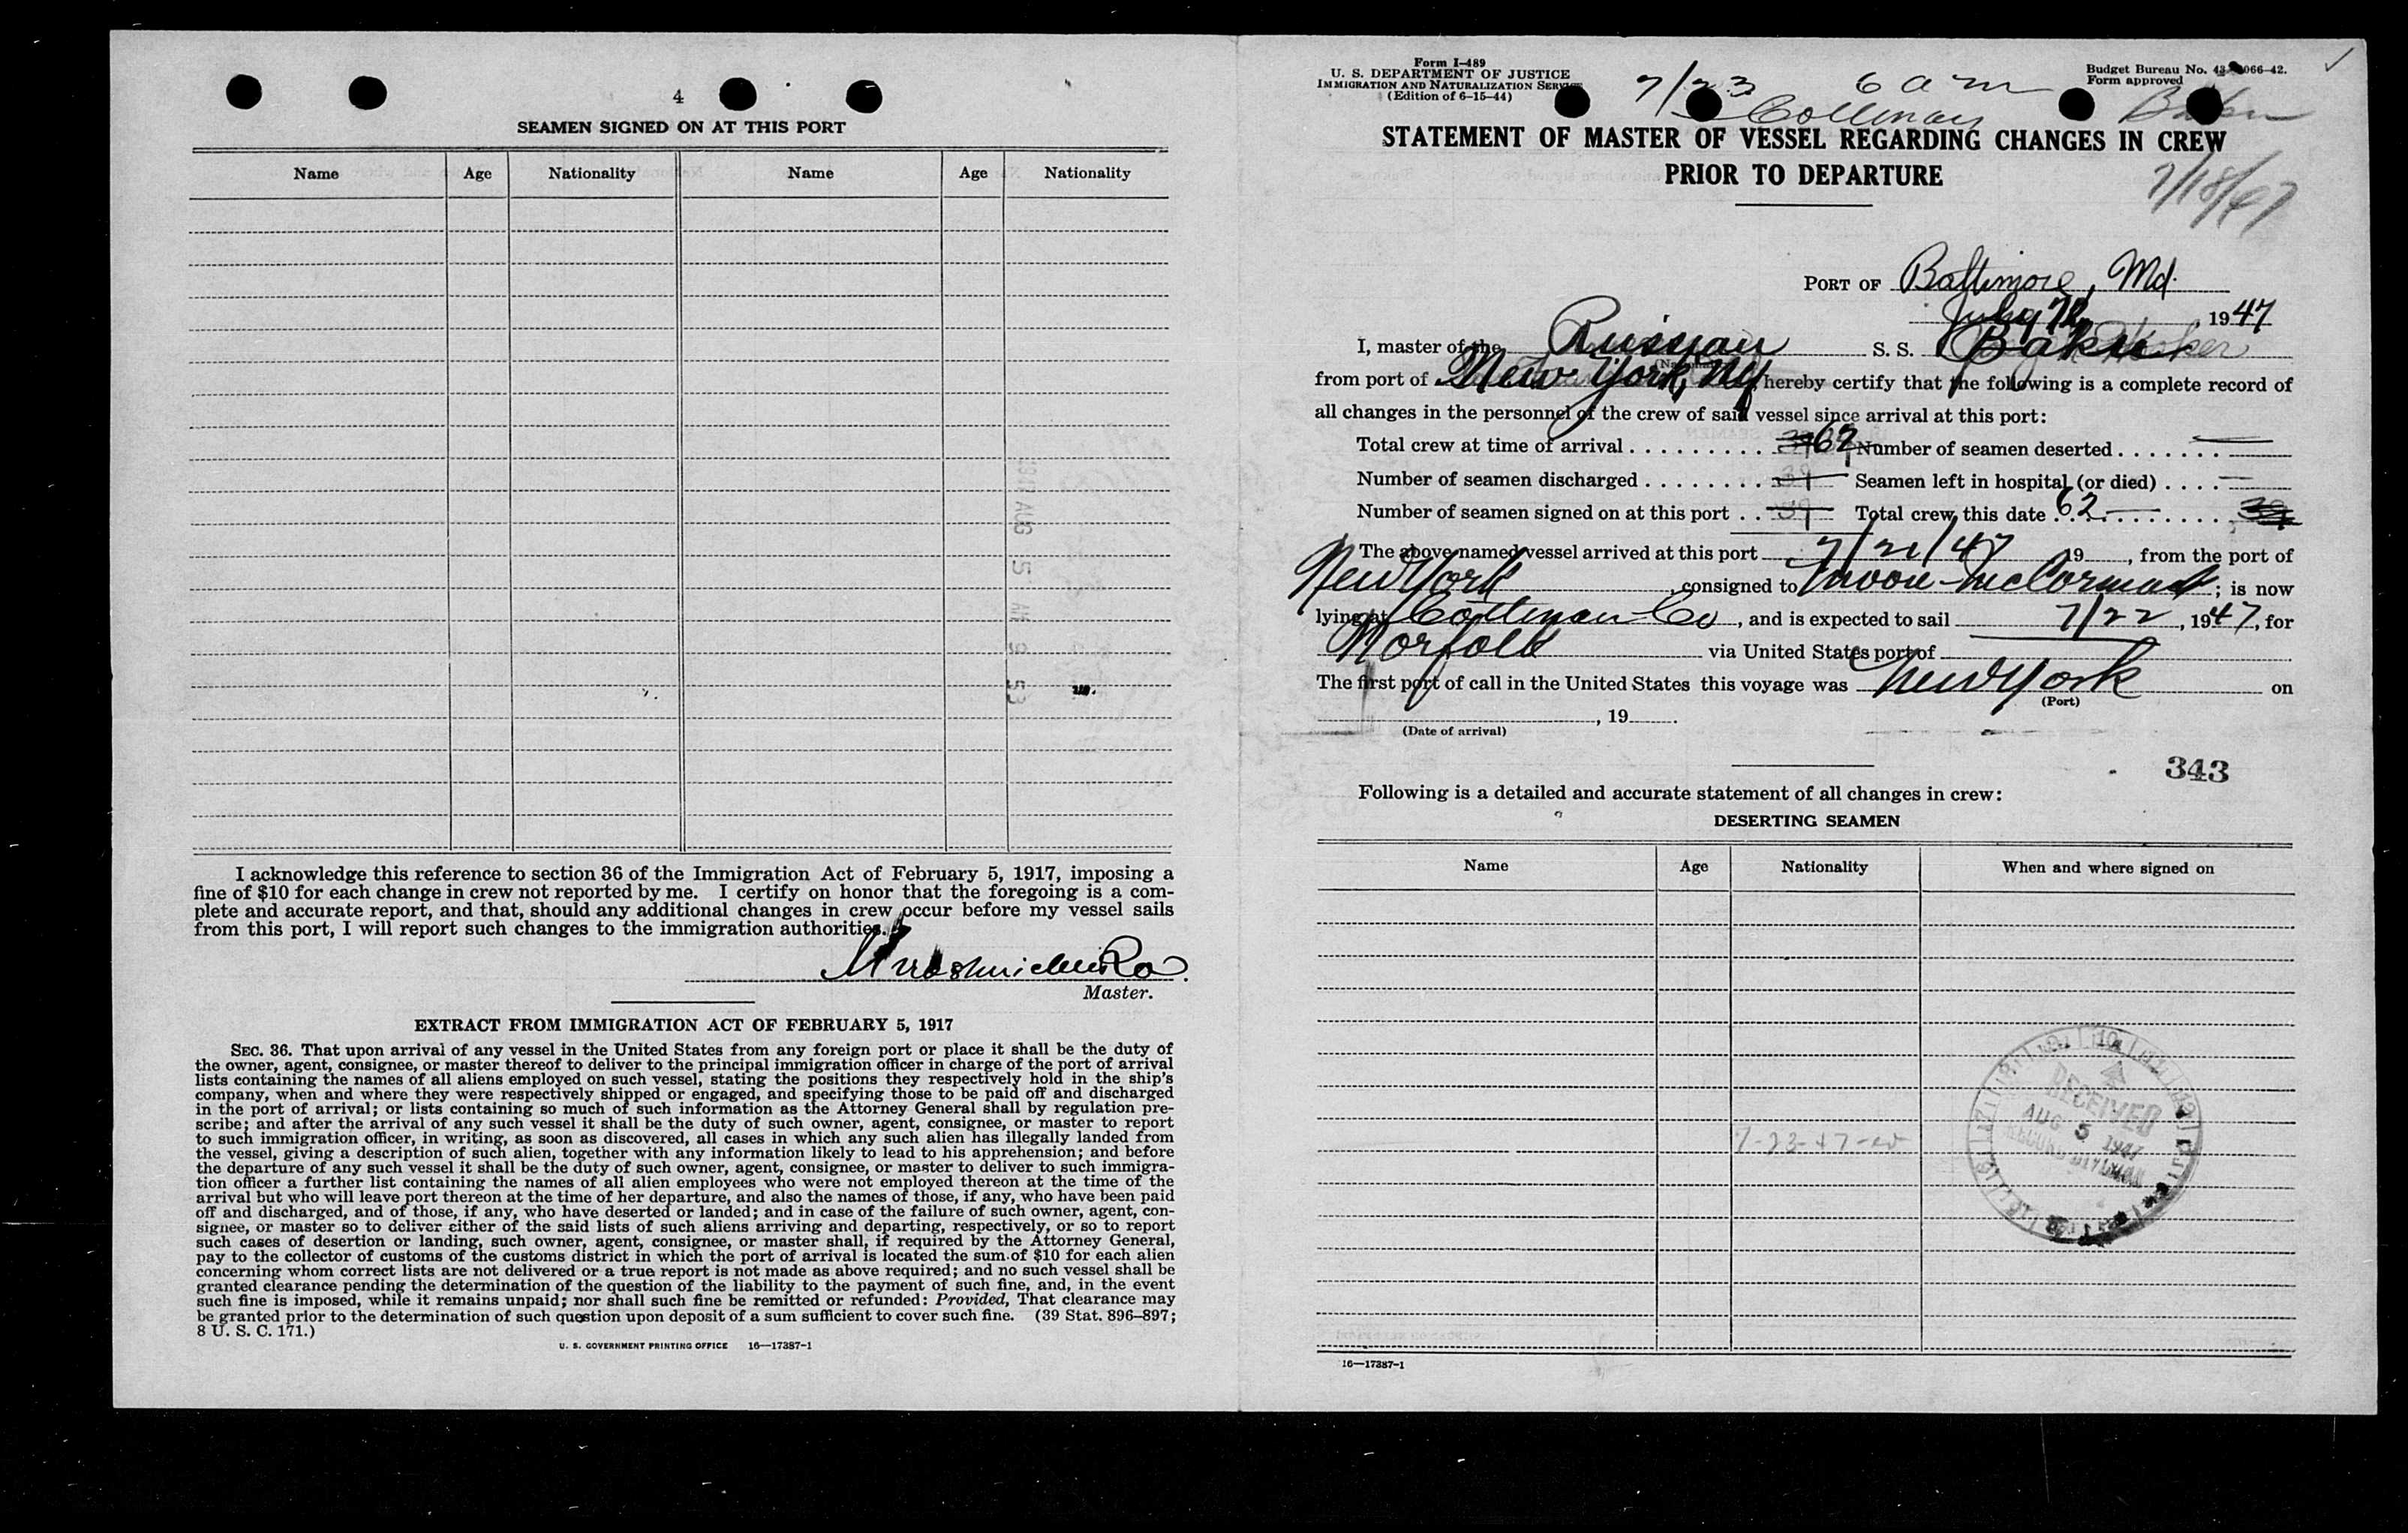 4
SEAMEN SIGNED ON AT THIS PORT
Name Age Nationality Name Age Nationality
I acknowledge this reference to section 36 of the Immigration Act of February 5, 1917, imposing a
fine of $10 for each change in crew not reported by me. I certify on honor that the foregoing is a com-
plete and accurate report, and that, should any additional changes in crew occur before my vessel sails
from this port, I will report such changes to the immigration authorities.
Master.
EXTRACT FROM IMMIGRATION ACT OF FEBRUARY 5, 1917
SEC. 36. That upon arrival of any vessel in the United States from any foreign port or place it shall be the duty of
the owner, agent, consignee, or master thereof to deliver to the principal immigration officer in charge of the port of arrival
lists containing the names of all aliens employed on such vessel, stating the positions they respectively hold in the ship's
company, when and where they were respectively shipped or engaged, and specifying those to be paid off and discharged
in the port of arrival; or lists containing so much of such information as the Attorney General shall by regulation pre-
scribe; and after the arrival of any such vessel it shall be the duty of such owner, agent, consignee, or master to report
to such immigration officer, in writing, as soon as discovered, all cases in which any such alien has illegally landed from
the vessel, giving a description of such alien, together with any information likely to lead to his apprehension; and before
the departure of any such vessel it shall be the duty of such owner, agent, consignee, or master to deliver to such immigra-
tion officer a further list containing the names of all alien employees who were not employed thereon at the time of the
arrival but who will leave port thereon at the time of her departure, and also the names of those, if any, who have been paid
off and discharged, and of those, if any, who have deserted or landed; and in case of the failure of such owner, agent, con-
signee, or master so to deliver either of the said lists of such aliens arriving and departing, respectively, or so to report
such cases of desertion or landing, such owner, agent, consignee, or master shall, if required by the Attorney General,
pay to the collector of customs of the customs district in which the port of arrival is located the sum of $10 for each alien
concerning whom correct lists are not delivered or a true report is not made as above required; and no such vessel shall be
granted clearance pending the determination of the question of the liability to the payment of such fine, and, in the event
such fine is imposed, while it remains unpaid; nor shall such fine be remitted or refunded: Provided, That clearance may
be granted prior to the determination of such question upon deposit of a sum sufficient to cover such fine. (39 Stat. 896-897;
8 U. S. C. 171.)
U. S. GOVERNMENT PRINTING OFFICE 16—17387-1
Form I-489
U. S. DEPARTMENT OF JUSTICE
IMMIGRATION AND NATURALIZATION SERVICE
(Edition of 6-15-44)
7/23 6 a m
Budget Bureau No. 066-42.
Form approved
STATEMENT OF MASTER OF VESSEL REGARDING CHANGES IN CREW
PRIOR TO DEPARTURE
7/18/47
PORT OF Baltimore, Md.
July 1947
I, master of the Russian S. S. Baku
from port of New York, NY hereby certify that the following is a complete record of
all changes in the personnel of the crew of said vessel since arrival at this port:
Total crew at time of arrival 62 Number of seamen deserted —
Number of seamen discharged 39 Seamen left in hospital (or died) —
Number of seamen signed on at this port 39 Total crew this date 62 39
The above named vessel arrived at this port 7/21/47 19 , from the port of
New York , consigned to Moore-McCormack ; is now
lying at , and is expected to sail 7/22 , 1947, for
Norfolk via United States port of
The first port of call in the United States this voyage was New York on
(Port)
, 19 .
(Date of arrival)
343
Following is a detailed and accurate statement of all changes in crew:
DESERTING SEAMEN
Name Age Nationality When and where signed on
RECEIVED
AUG 5 1947
7-23-47
16—17387-1